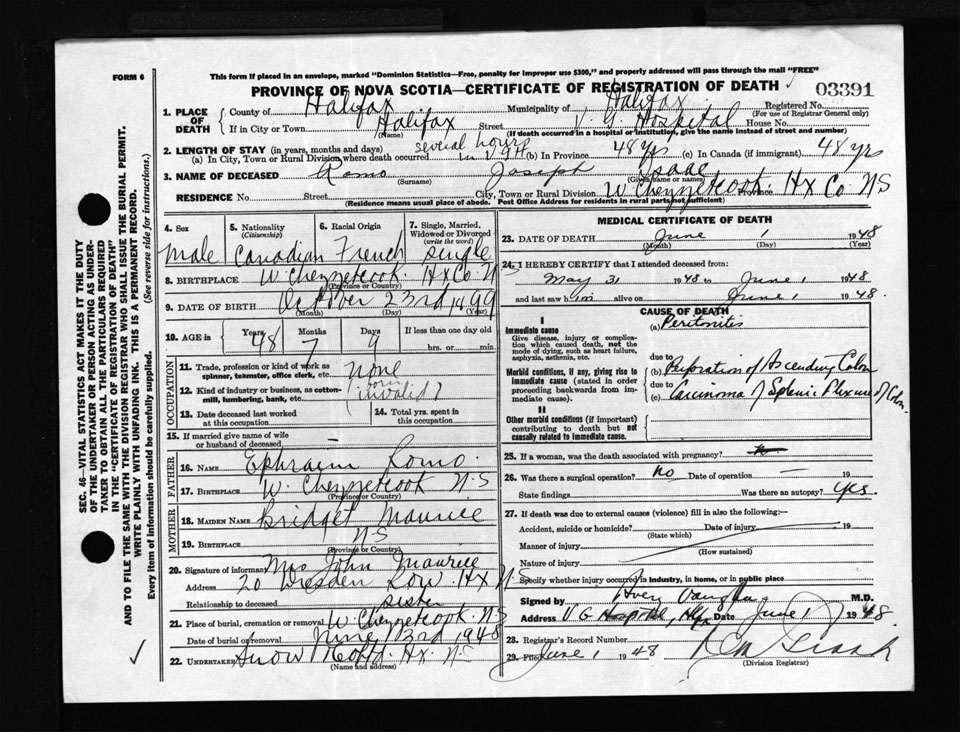 FORM 6
This form if placed in an envelope, marked "Dominion Statistics—Free, penalty for improper use $300," and properly addressed will pass through the mail "FREE"
PROVINCE OF NOVA SCOTIA—CERTIFICATE OF REGISTRATION OF DEATH
03391
1. PLACE OF DEATH
County of Halifax Municipality of Halifax Registered No.
(For use of Registrar General only)
If in City or Town Halifax Street V. G. Hospital House No.
(Name) (If death occurred in a hospital or institution, give the name instead of street and number)
2. LENGTH OF STAY (in years, months and days)
(a) In City, Town or Rural Division where death occurred several hours in V G H (b) In Province 48 yrs (c) In Canada (if immigrant) 48 yrs
3. NAME OF DECEASED Romo Joseph Isaac
(Surname) (Given name or names)
RESIDENCE No. Street City, Town or Rural Division W. Chezzetcook Province Hx Co. N S
(Residence means usual place of abode. Post Office Address for residents in rural parts not sufficient)
4. Sex male
5. Nationality (Citizenship) Canadian
6. Racial Origin French
7. Single, Married, Widowed or Divorced (write the word) single
8. BIRTHPLACE W. Chezzetcook Hx Co. N S
(Province or Country)
9. DATE OF BIRTH October 23rd 1899
(Month) (Day) (Year)
10. AGE in Years 48 Months 7 Days 9 If less than one day old hrs. or min.
OCCUPATION
11. Trade, profession or kind of work as spinner, teamster, office clerk, etc. none
12. Kind of industry or business, as cotton-mill, lumbering, bank, etc. (born invalid)
13. Date deceased last worked at this occupation
14. Total yrs. spent in this occupation
15. If married give name of wife or husband of deceased
FATHER
16. NAME Ephraim Romo
17. BIRTHPLACE W. Chezzetcook N S
(Province or Country)
MOTHER
18. MAIDEN NAME Bridget Maurice
19. BIRTHPLACE N S
(Province or Country)
20. Signature of informant Mrs John Maurice
Address 20 Dresden Row Hx N S
Relationship to deceased sister
21. Place of burial, cremation or removal W. Chezzetcook N S
Date of burial or removal June 3rd 1948
22. UNDERTAKER Snow Hx. N S
(Name and address)
MEDICAL CERTIFICATE OF DEATH
23. DATE OF DEATH June 1 1948
(Month) (Day) (Year)
24. I HEREBY CERTIFY that I attended deceased from:
May 31 1948 to June 1 1948
and last saw him alive on June 1 1948.
CAUSE OF DEATH
I
Immediate cause
Give disease, injury or complication which caused death, not the mode of dying, such as heart failure, asphyxia, asthenia, etc.
(a) Peritonitis
Morbid conditions, if any, giving rise to immediate cause (stated in order proceeding backwards from immediate cause).
due to
(b) Perforation of Ascending Colon
due to
(c) Carcinoma of Splenic Flexure of Colon.
II
Other morbid conditions (if important) contributing to death but not causally related to immediate cause.
25. If a woman, was the death associated with pregnancy?
26. Was there a surgical operation? No Date of operation — 19
State findings Was there an autopsy? yes.
27. If death was due to external causes (violence) fill in also the following:—
Accident, suicide or homicide? Date of injury 19
(State which)
Manner of injury
(How sustained)
Nature of injury
Specify whether injury occurred in industry, in home, or in public place
Signed by Avery Vaughan M.D.
Address V G Hospital, Hfx Date June 1 1948.
28. Registrar's Record Number
29. Filed June 1 1948
(Division Registrar)
SEC. 46—VITAL STATISTICS ACT MAKES IT THE DUTY
OF THE UNDERTAKER OR PERSON ACTING AS UNDER-
TAKER TO OBTAIN ALL THE PARTICULARS REQUIRED
IN THE "CERTIFICATE OF REGISTRATION OF DEATH"
AND TO FILE THE SAME WITH THE DIVISION REGISTRAR WHO SHALL ISSUE THE BURIAL PERMIT.
WRITE PLAINLY WITH UNFADING INK. THIS IS A PERMANENT RECORD.
Every item of information should be carefully supplied. (See reverse side for instructions.)